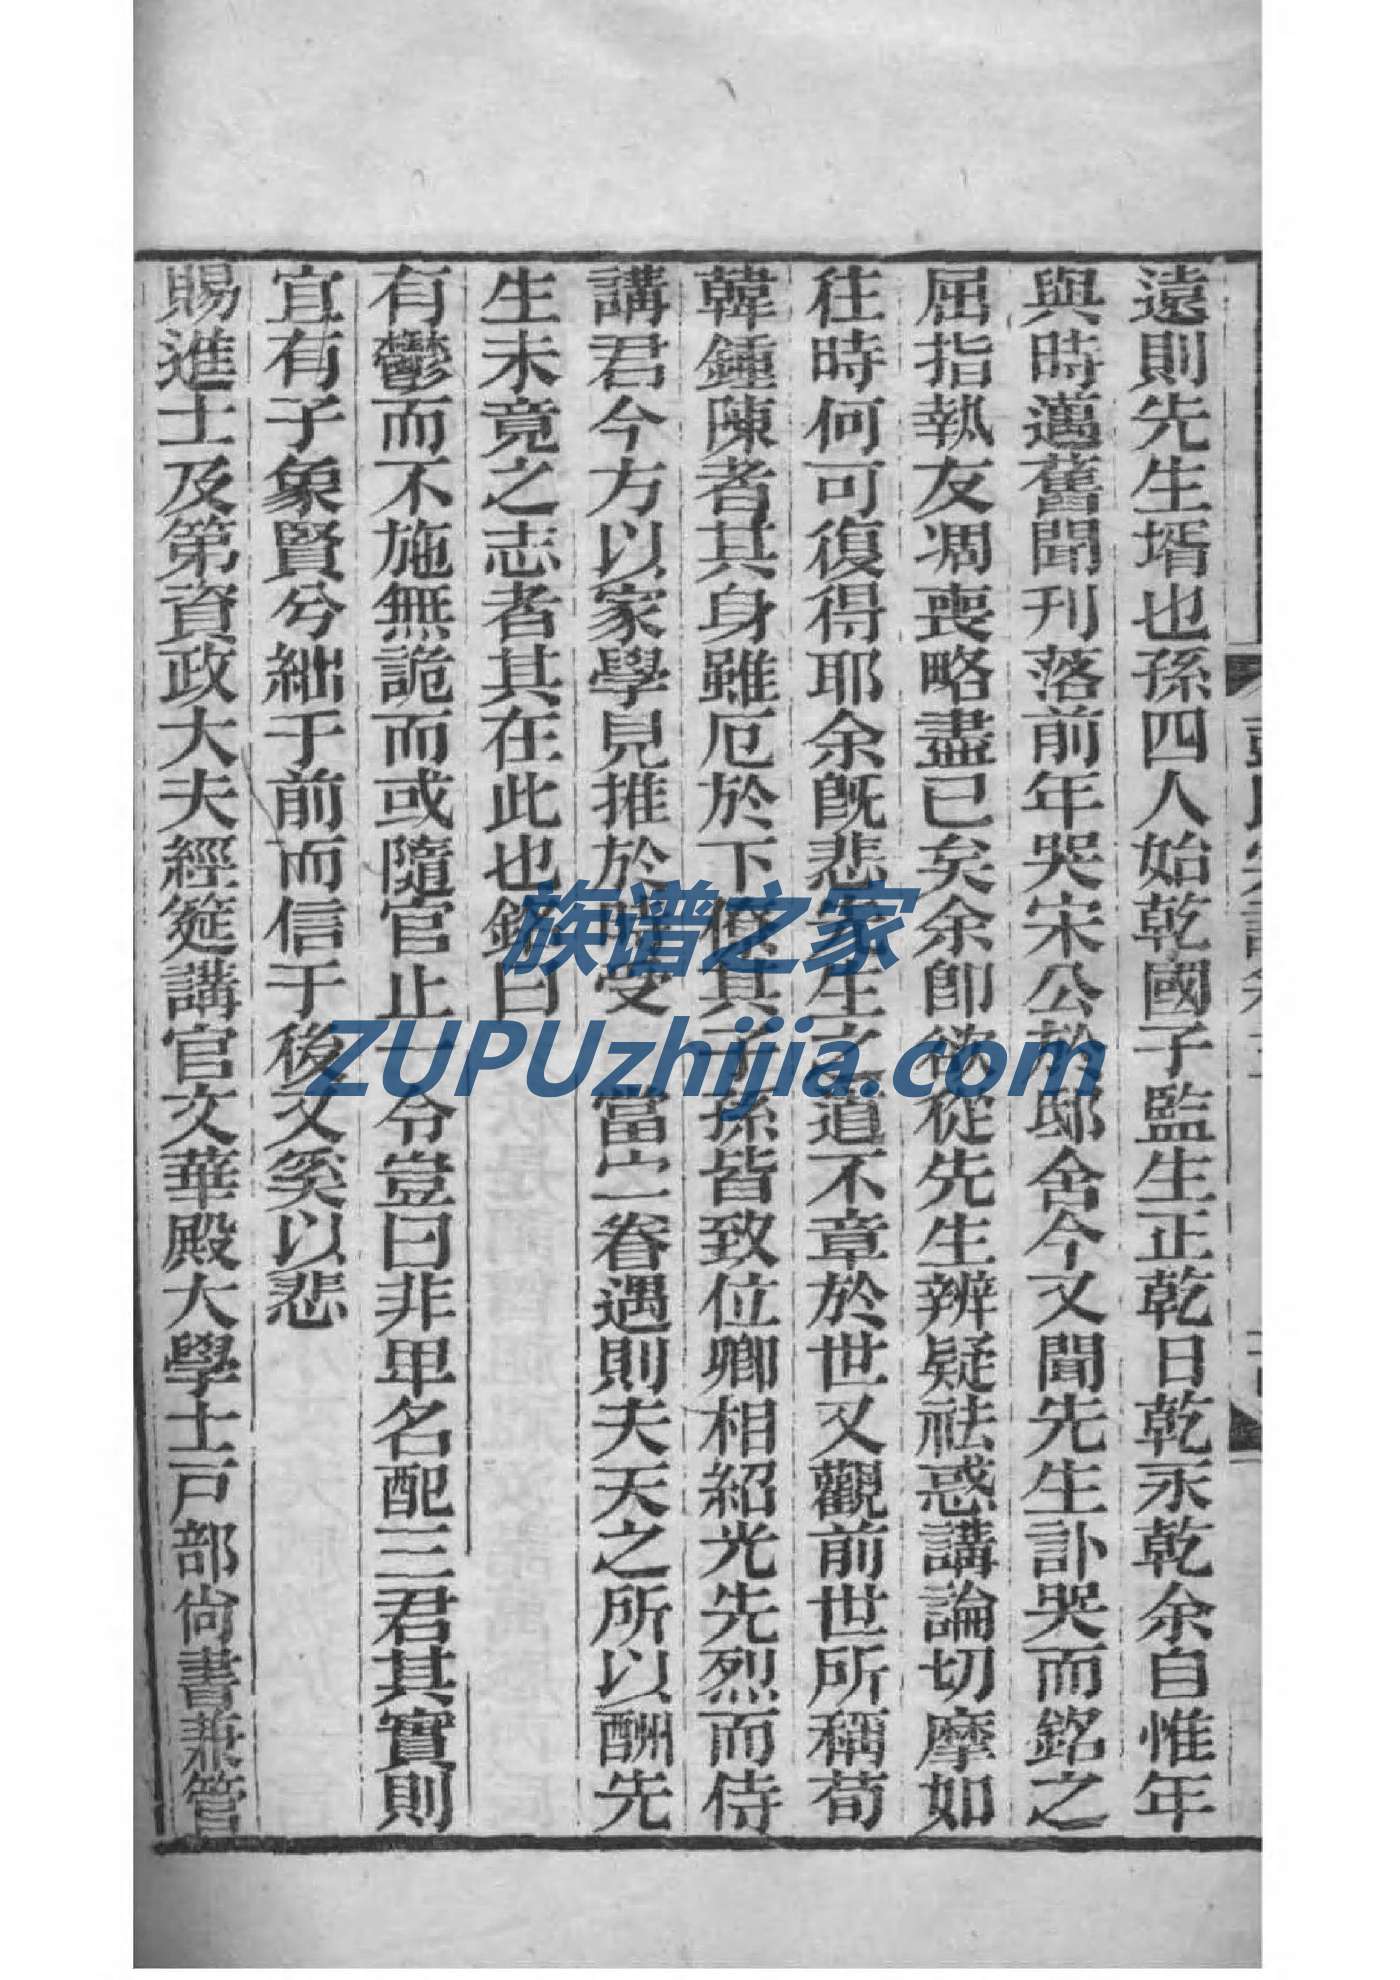 遠則先生壻也孫四人始乾國子監生正乾日乾永乾余自惟年
與時邁舊聞刋落前年哭宋公於邸舍今又聞先生訃哭而銘之
屈指執友凋喪略盡已矣余卽欲從先生辨疑祛惑講論切摩如
往時何可復得耶余旣悲先生之道不章於世又觀前世所稱荀
韓鍾陳者其身雖厄於下僚其子孫皆致位卿相紹光先烈而侍
講君今方以家學見推於時受 當宁眷遇則夫天之所以酬先
生未竟之志者其在此也銘曰
有鬱而不施無詭而或隨官止一令豈曰非卑名配三君其實則
宜有子象賢兮絀于前而信于後又奚以悲
賜進士及第資政大夫經筵講官文華殿大學士戸部尙書兼管
族谱之家
ZUPUzhijia.com